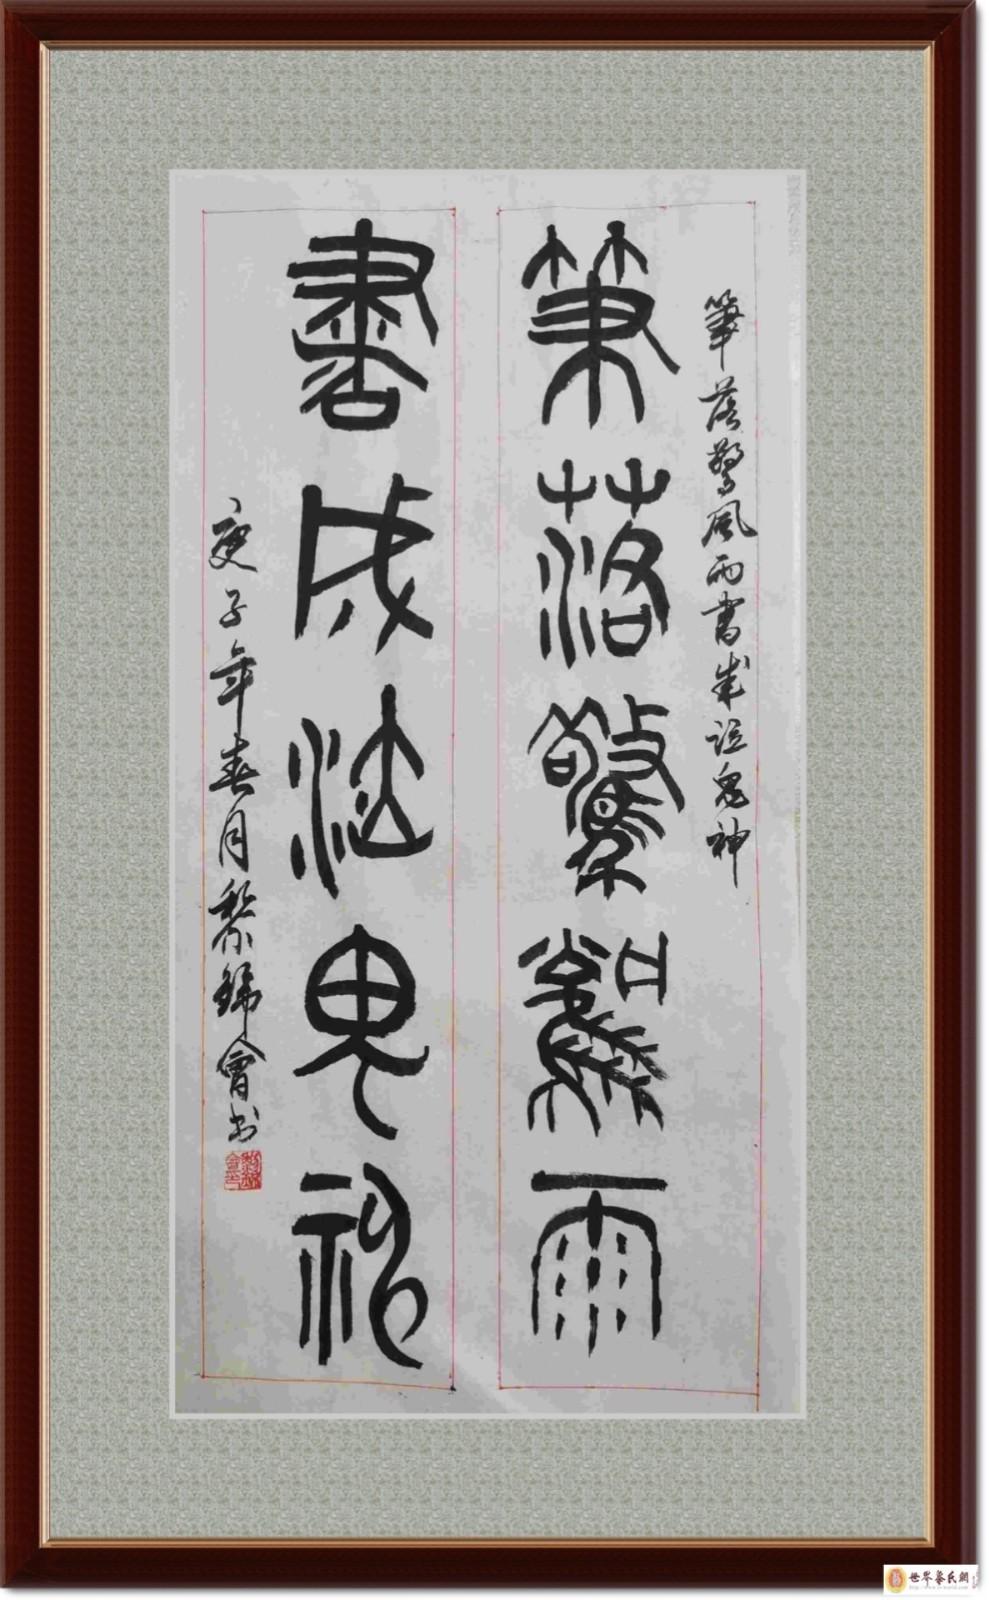 筆落驚風雨書成泣鬼神
筆落驚風雨
書成泣鬼神
庚子年春月黎錦會书
世界黎氏網